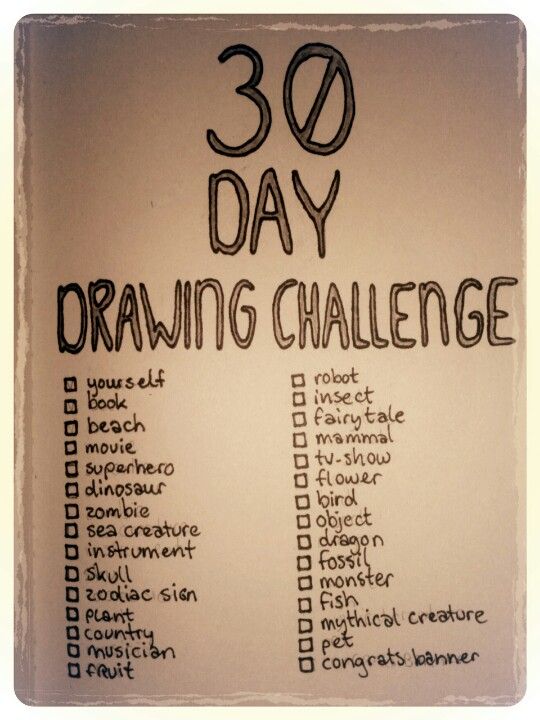 30
DAY
DRAWING CHALLENGE
yourself
book
beach
movie
superhero
dinosaur
zombie
sea creature
instrument
skull
zodiac sign
plant
country
musician
fruit
robot
insect
fairytale
mammal
tv-show
flower
bird
object
dragon
fossil
monster
fish
mythical creature
pet
congrats banner